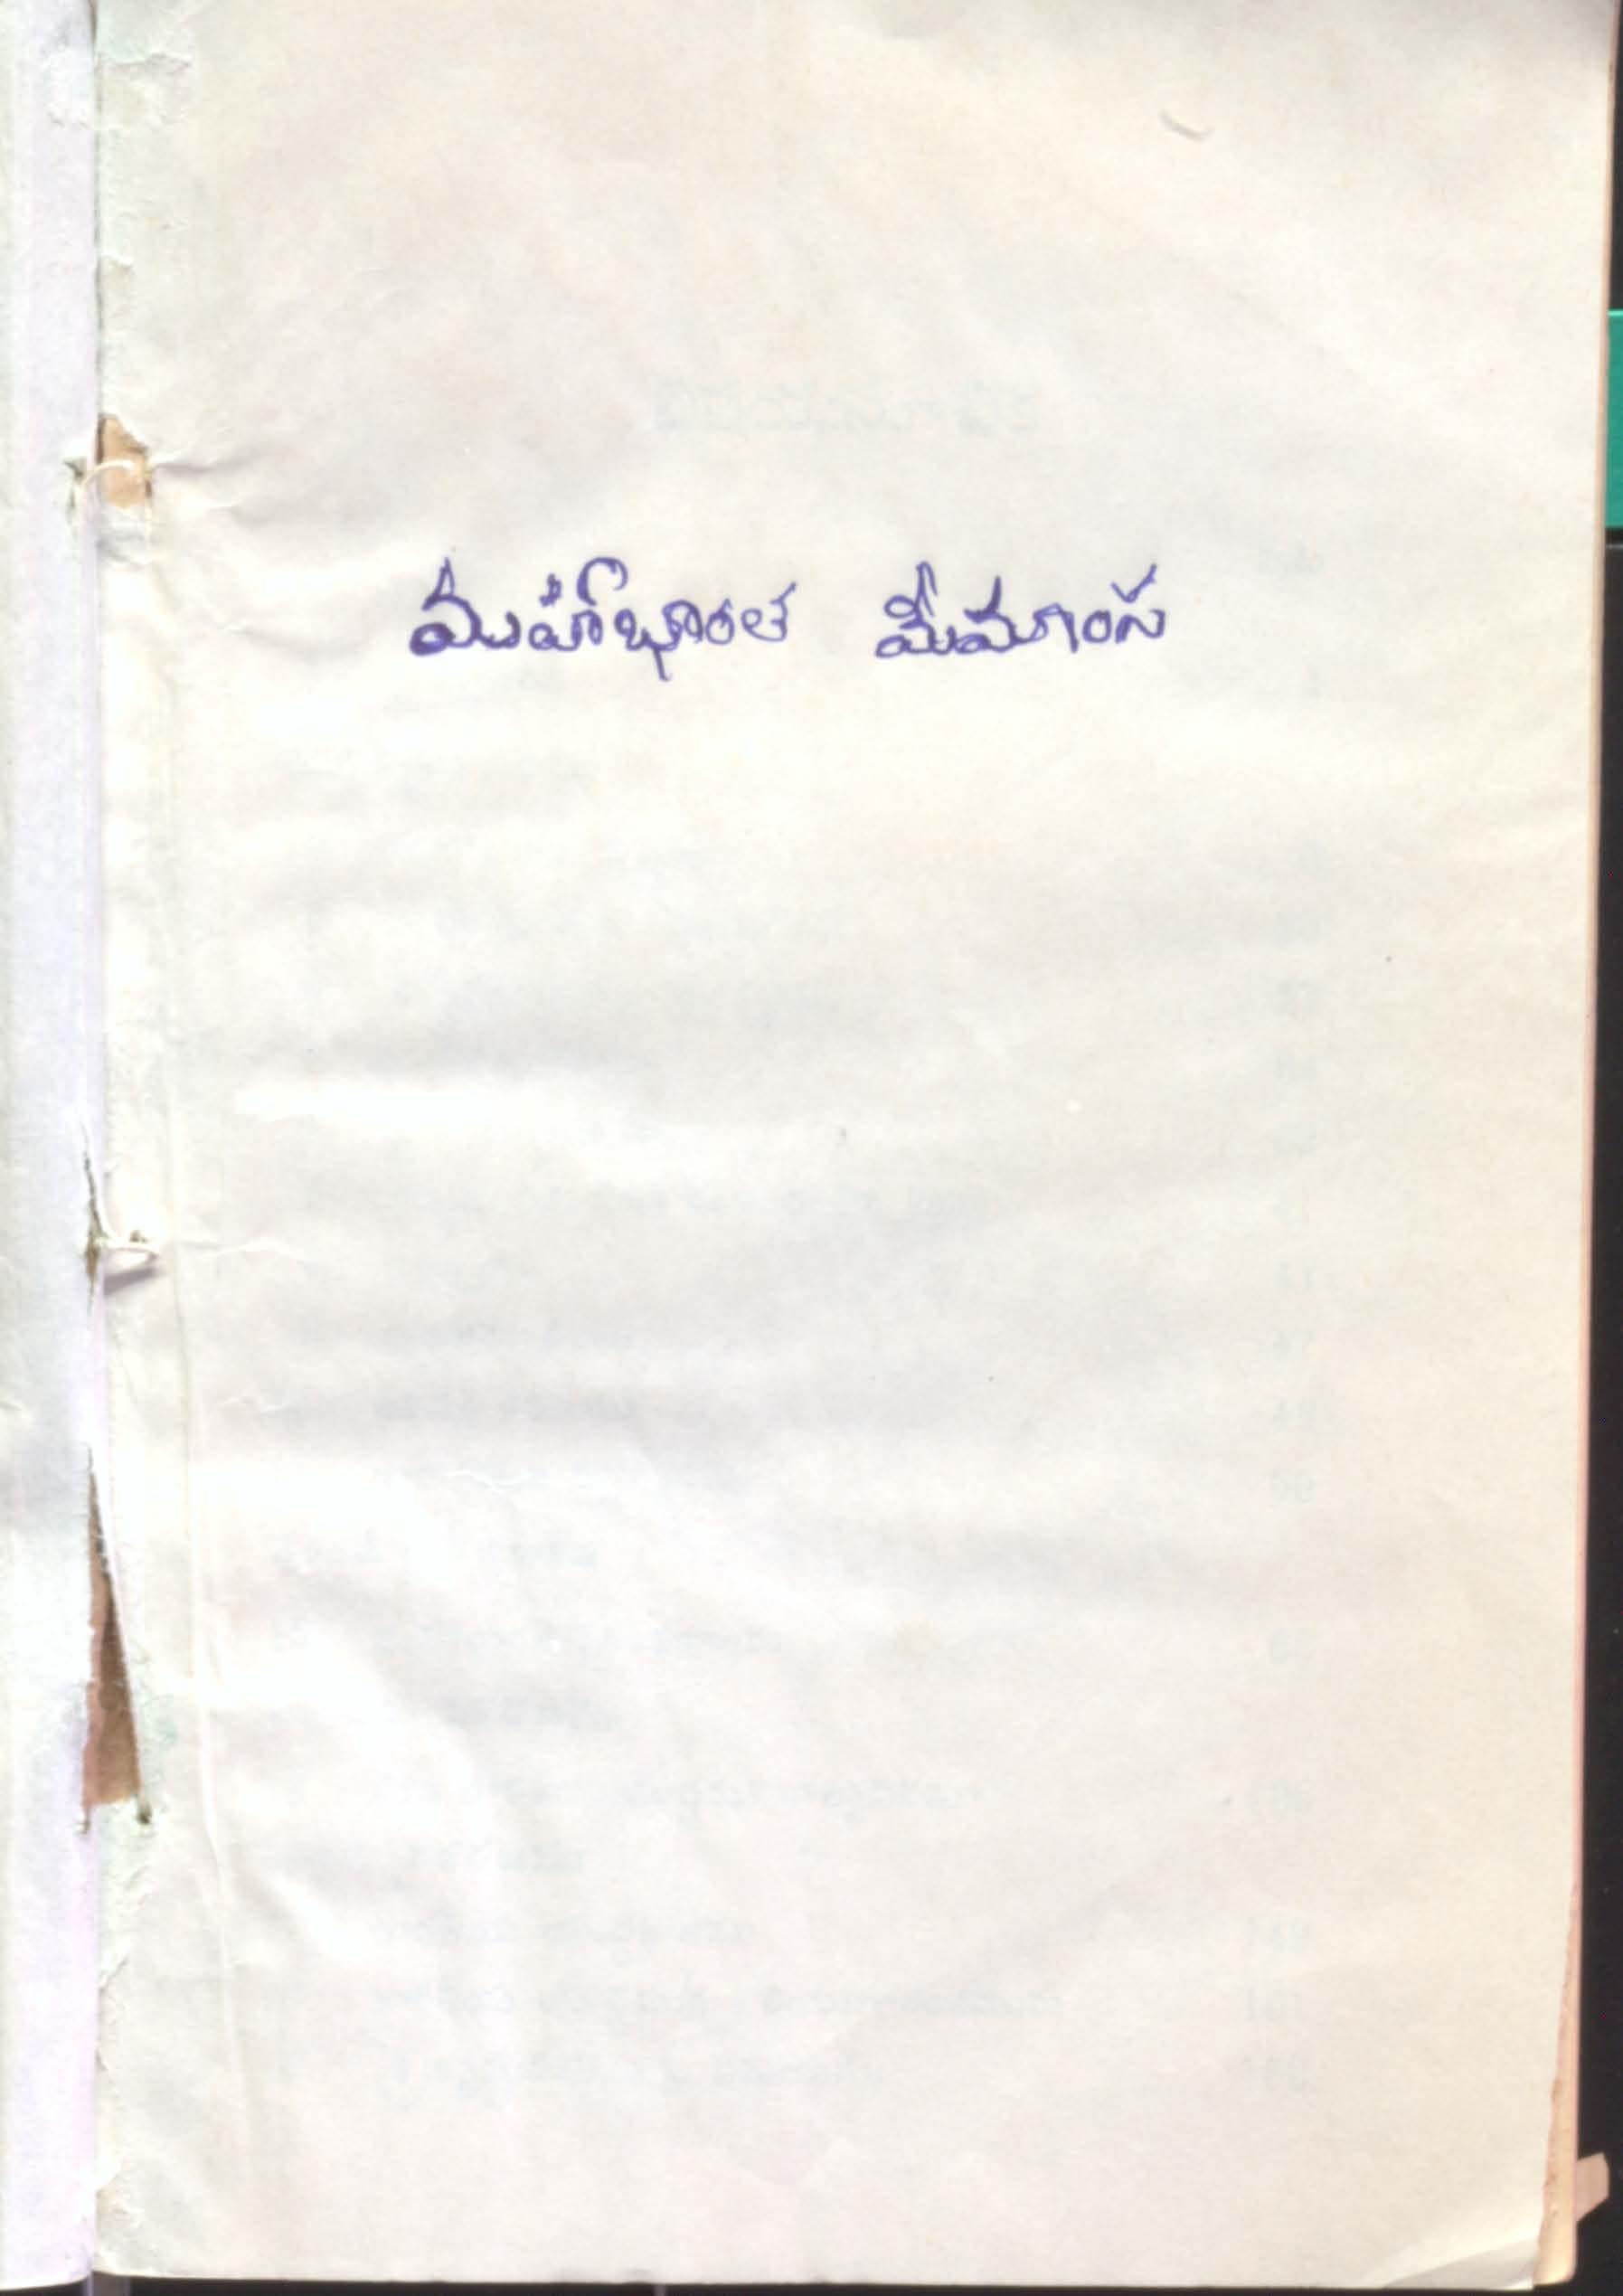 మహాభారత మీమాంస